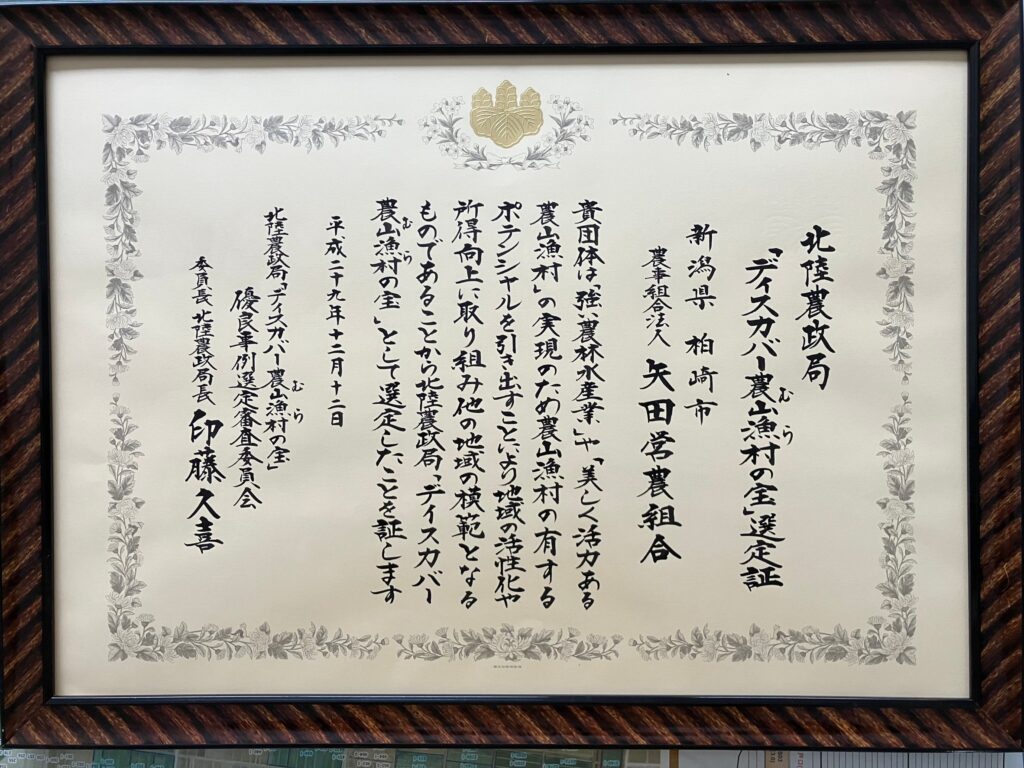 北陸農政局
「ディスカバー農山漁村の宝」選定証
むら
新潟県 柏崎市
農事組合法人 矢田営農組合
貴団体は「強い農林水産業」や「美しく活力ある
農山漁村」の実現のため農山漁村の有する
ポテンシャルを引き出すことにより地域の活性化や
所得向上に取り組み他の地域の模範となる
ものであることから北陸農政局「ディスカバー
農山漁村の宝」として選定したことを証します
むら
平成二十九年十二月十二日
北陸農政局「ディスカバー農山漁村の宝」
むら
優良事例選定審査委員会
委員長 北陸農政局長 印藤久喜